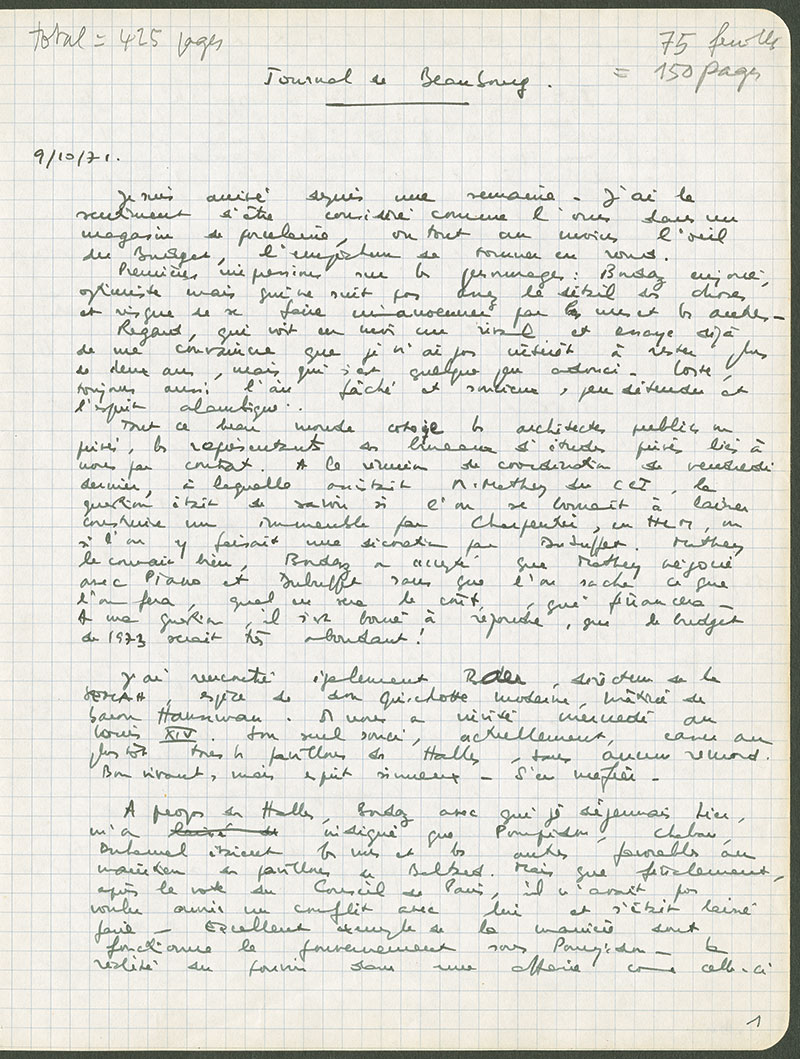 total = 425 pages
75 feuilles
= 150 pages
Journal de Beaubourg.
9/10/71.
Je suis arrivé depuis une semaine - J'ai le
sentiment d'être considéré comme l'ours dans un
magasin de porcelaine, ou tout au moins l'oeil
du Budget, l'empêcheur de tourner en rond.
Premières impressions sur les personnages : Bordaz enjoué,
optimiste mais qui ne suit pas assez le détail des choses
et risque de se faire manoeuvrer par les uns et les autres -
Regard, qui voit en moi un rival et essaye déjà
de me convaincre que je n'ai pas intérêt à rester plus
de deux ans, mais qui s'est quelque peu adouci - Coste,
toujours aussi l'air fâché et soucieux, peu détendu et
l'esprit alambiqué..
Tout ce beau monde cotoie les architectes publics ou
privés, les représentants des bureaux d'études privés liés à
nous par contrat. A la réunion de coordination de vendredi
dernier, à laquelle assistait M. Mathey du CCI, la
question était de savoir si l'on se bornait à laisser
construire un immeuble par Charpentier, en HLM, ou
si l'on y faisait une décoration par Dubuffet. Mathey
le connait bien, Bordaz a accepté que Mathey négocie
avec Piano et Dubuffet sans que l'on sache ce que
l'on fera, quel en sera le coût, qui financera -
A ma question, il s'est borné à répondre, que le budget
de 1973 serait très abondant !
J'ai rencontré également, directeur de la
SEMAH, espèce de don quichotte moderne, mâtiné de
baron Haussman. Il nous a invité mercredi au
Louis XIV. Son seul souci, actuellement, casser au
plus tôt tous les pavillons des Halles, sans aucun remord.
Bon vivant, mais esprit sinueux - S'en méfier -
A propos des Halles, Bordaz avec qui je déjeunais hier,
m'a indiqué que Pompidou, Chaban,
Duhamel étaient les uns et les autres favorables au
maintien des pavillons de Baltard. Mais que finalement,
après le vote du Conseil de Paris, il n'avait pas
voulu ouvrir un conflit avec lui et s'était laissé
faire - Excellent exemple de la manière dont
fonctionne le gouvernement sous Pompidou - la
réalité du pouvoir dans une affaire comme celle-ci
1